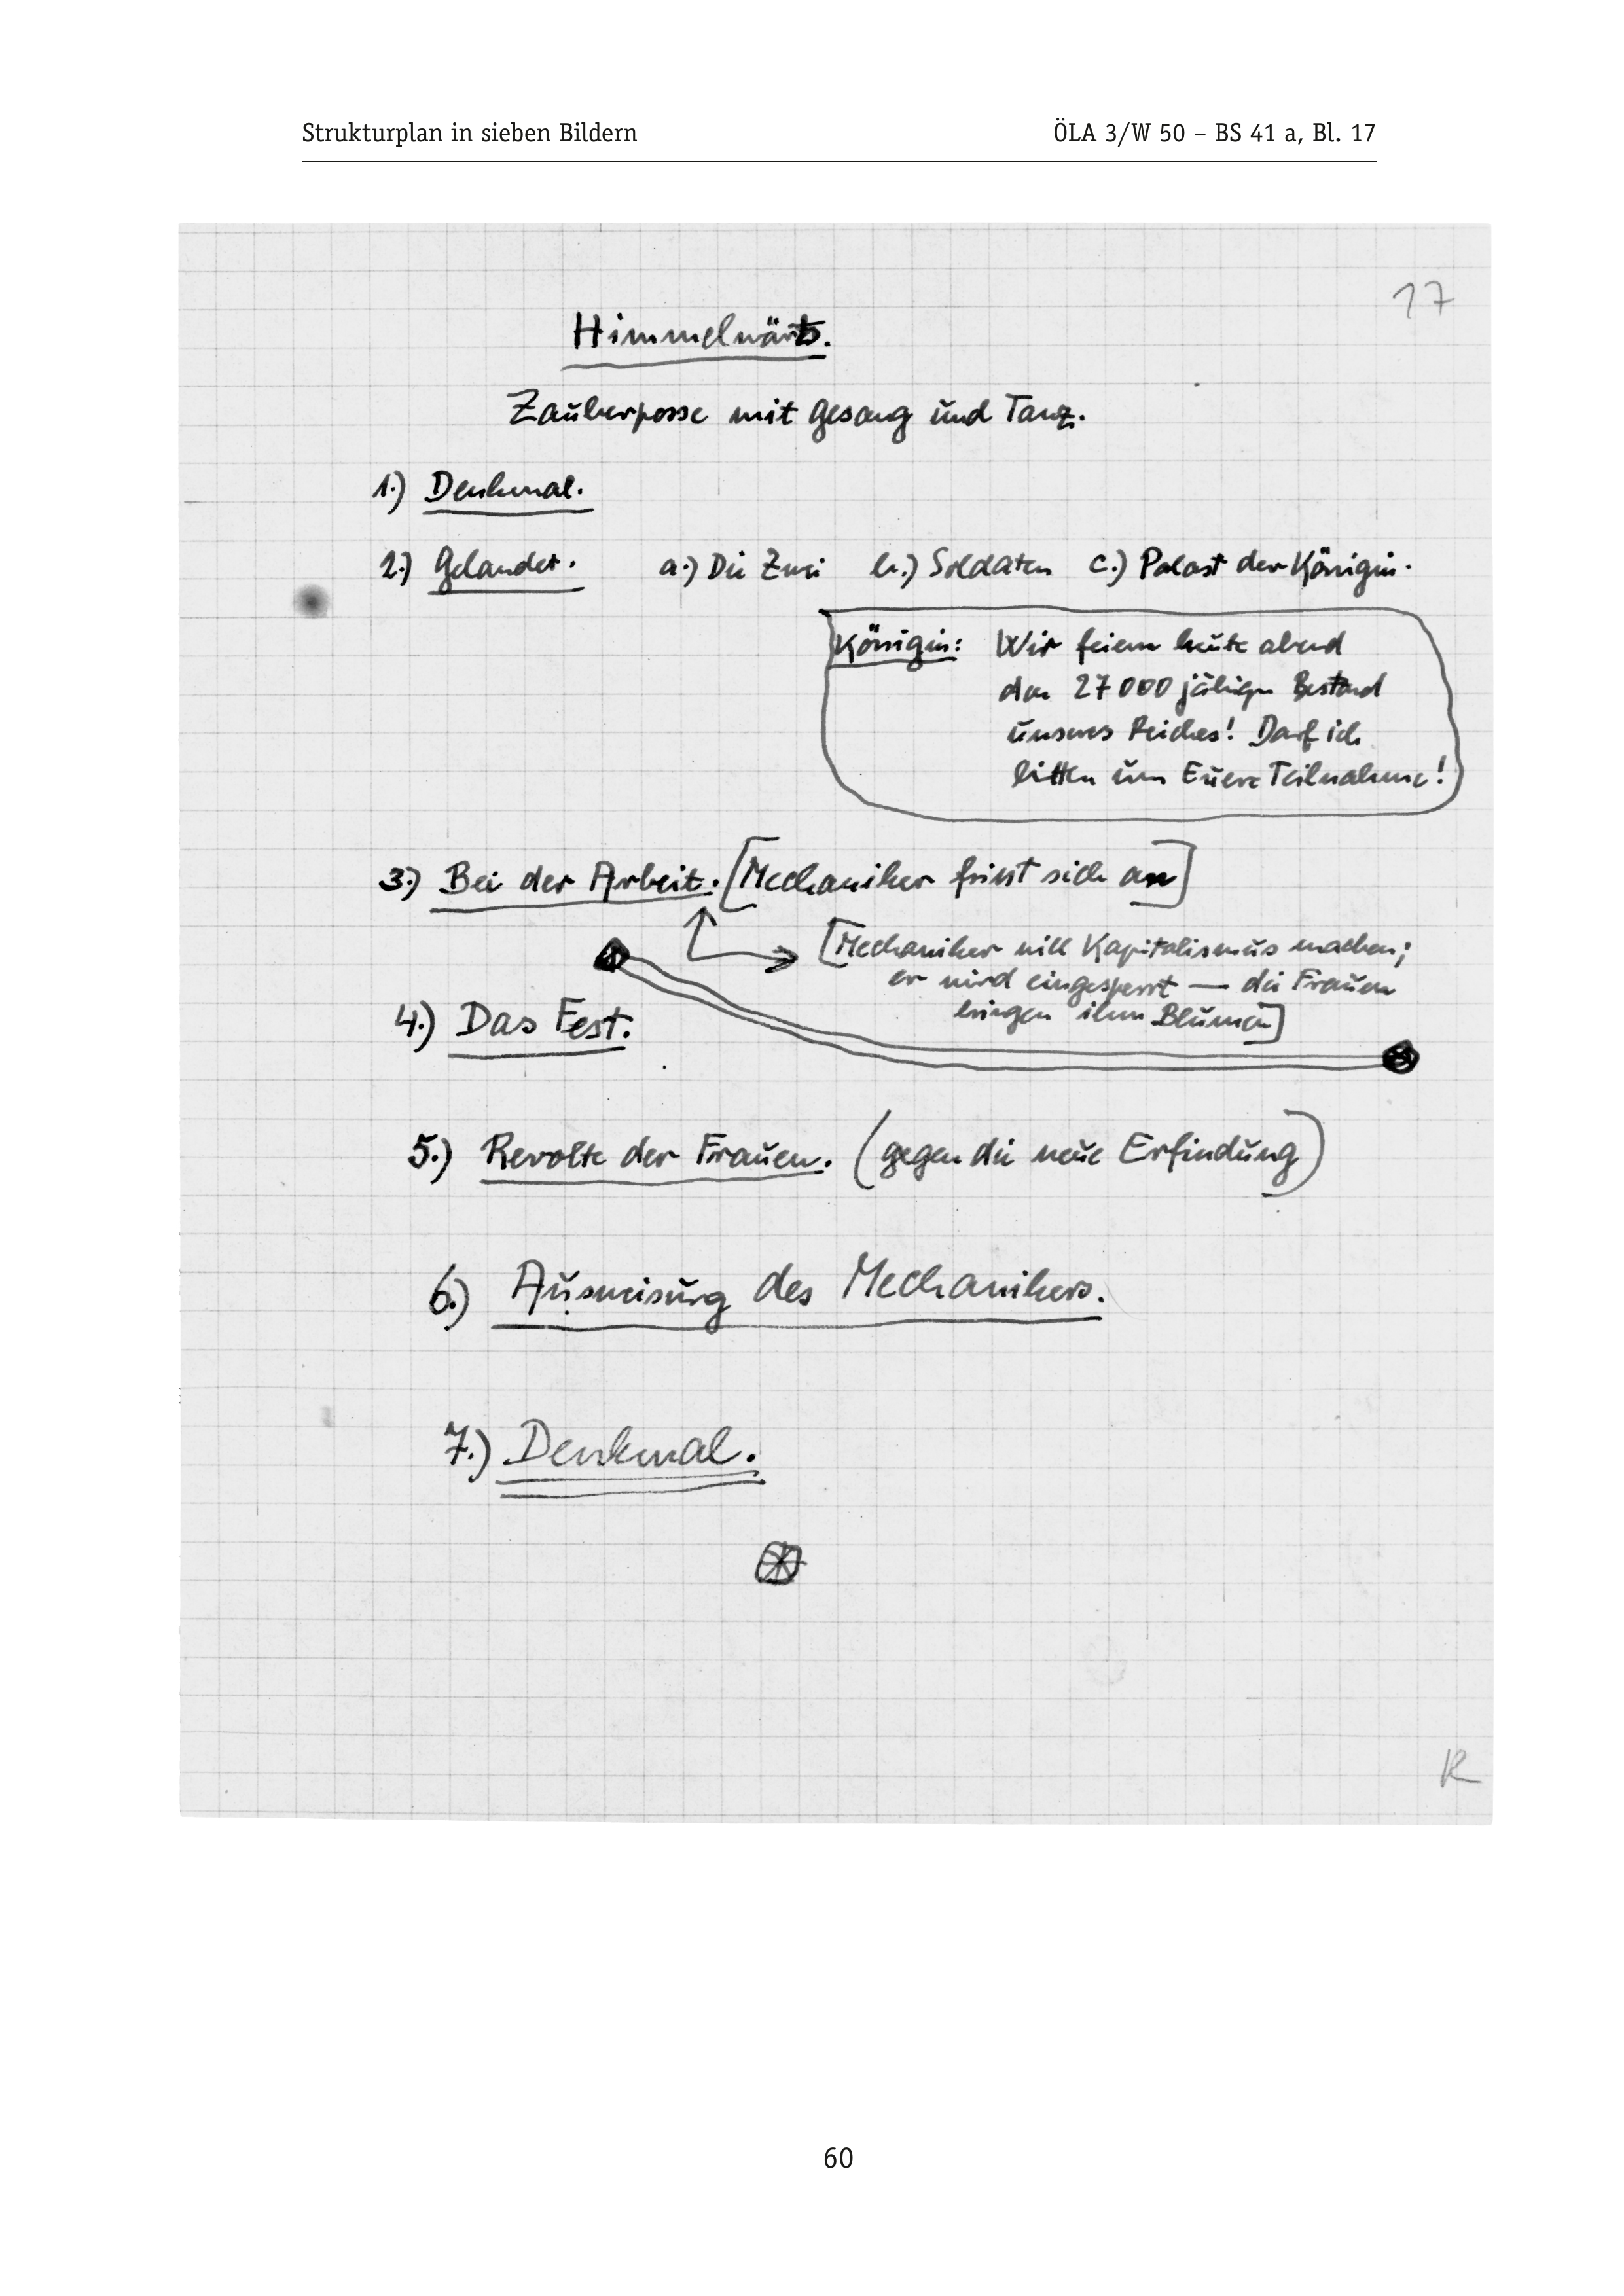 Strukturplan in sieben Bildern
ÖLA 3/W 50 – BS 41 a, Bl. 17
17
Himmelwärts.
Zauberposse mit Gesang und Tanz.
1.) Denkmal.
2.) Gelandet. a.) Die Zwei b.) Soldaten c.) Palast der Königin.
Königin: Wir feiern heute abend
den 27000 jährigen Bestand
unseres Reiches! Darf ich
bitten um Euere Teilnahme!
3.) Bei der Arbeit. [Mechaniker frisst sich an]
[Mechaniker will Kapitalismus machen;
er wird eingesperrt — die Frauen
bringen ihm Blumen]
4.) Das Fest.
5.) Revolte der Frauen. (gegen die neue Erfindung)
6.) Ausweisung des Mechanikers.
7.) Denkmal.
R
60